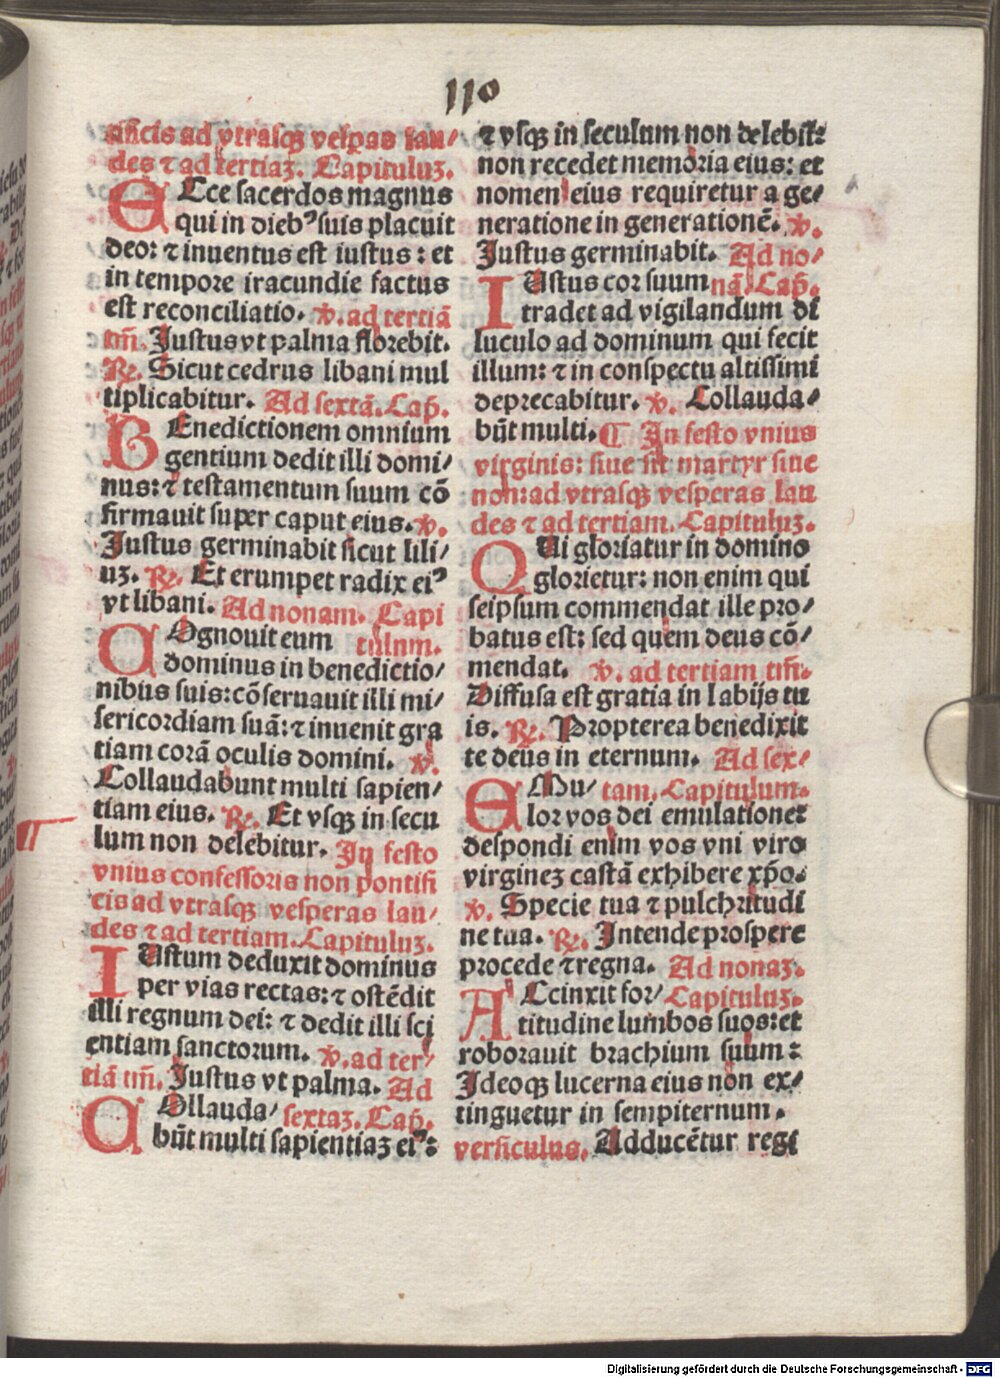 110
tificis ad vtrasqꝫ vespas lau⸗
des ⁊ ad tertiaꝫ. Capituluꝫ.
ECce sacerdos magnus
qui in diebꝰ suis placuit
deo: ⁊ inuentus est iustus : et
in tempore iracundie factus
est reconciliatio. ℣. ad tertiā
tm̄. Justus vt palma florebit.
℞. Sicut cedrus libani mul
tiplicabitur. Ad sextā. Cap̄.
BEnedictionem omnium
gentium dedit illi domi⸗
nus: ⁊ testamentum suum cō
firmauit super caput eius. ℣.
Justus germinabit sicut lili⸗
uꝫ. ℞. Et erumpet radix eiꝰ
vt libani. Ad nonam. Capi
COgnouit eum tulum.
dominus in benedictio⸗
nibus suis: cōseruauit illi mi⸗
sericordiam suā: ⁊ inuenit gra
tiam corā oculis domini. ℣.
Collaudabunt multi sapien⸗
tiam eius. ℞. Et vsqꝫ in secu
lum non delebitur. In festo
vnius confessoris non pontifi
cis ad vtrasqꝫ vesperas lau⸗
des ⁊ ad tertiam. Capituluꝫ.
IUstum deduxit dominus
per vias rectas: ⁊ ostēdit
illi regnum dei: ⁊ dedit illi sci
entiam sanctorum. ℣. ad ter⸗
tiā tm̄. Justus vt palma. Ad
COllauda⸗ sextaꝫ. Cap̄.
būt multi sapientiaꝫ eiꝰ:
⁊ vsqꝫ in seculum non delebit:
non recedet memoria eius: et
nomen eius requiretur a ge⸗
neratione in generationē. ℣.
Justus germinabit. Ad no⸗
IUstus cor suum nā. Cap̄.
tradet ad vigilandum di
luculo ad dominum qui fecit
illum: ⁊ in conspectu altissimi
deprecabitur. ℣. Collauda⸗
būt multi. ¶ In festo vnius
virginis: siue sit martyr siue
non: ad vtrasqꝫ vesperas lau
des ⁊ ad tertiam. Capituluꝫ.
QUi gloriatur in domino
glorietur: non enim qui
seipsum commendat ille pro⸗
batus est: sed quem deus cō⸗
mendat. ℣. ad tertiam tm̄.
Diffusa est gratia in labijs tu
is. ℞. Propterea benedixit
te deus in eternum. Ad sex⸗
EMu⸗ tam. Capitulum.
lor vos dei emulatione:
despondi enim vos vni viro
virgineꝫ castā exhibere xp̄o.
℣. Specie tua ⁊ pulchritudi
ne tua. ℞. Intende prospere
procede ⁊ regna. Ad nonaꝫ.
ACcinxit for⸗ Capituluꝫ.
titudine lumbos suos: et
roborauit brachium suum:
Ideoqꝫ lucerna eius non ex⸗
tinguetur in sempiternum.
versiculus. Adducētur regi
Digitalisierung gefördert durch die Deutsche Forschungsgemeinschaft - DFG